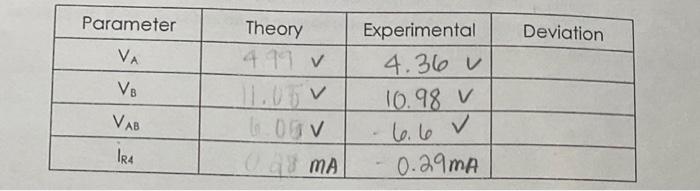 Parameter Theory Experimental Deviation
VA 4.99 V 4.36 V
VB 11.05 V 10.98 V
VAB V - 6.6 V
IR4 mA - 0.29mA